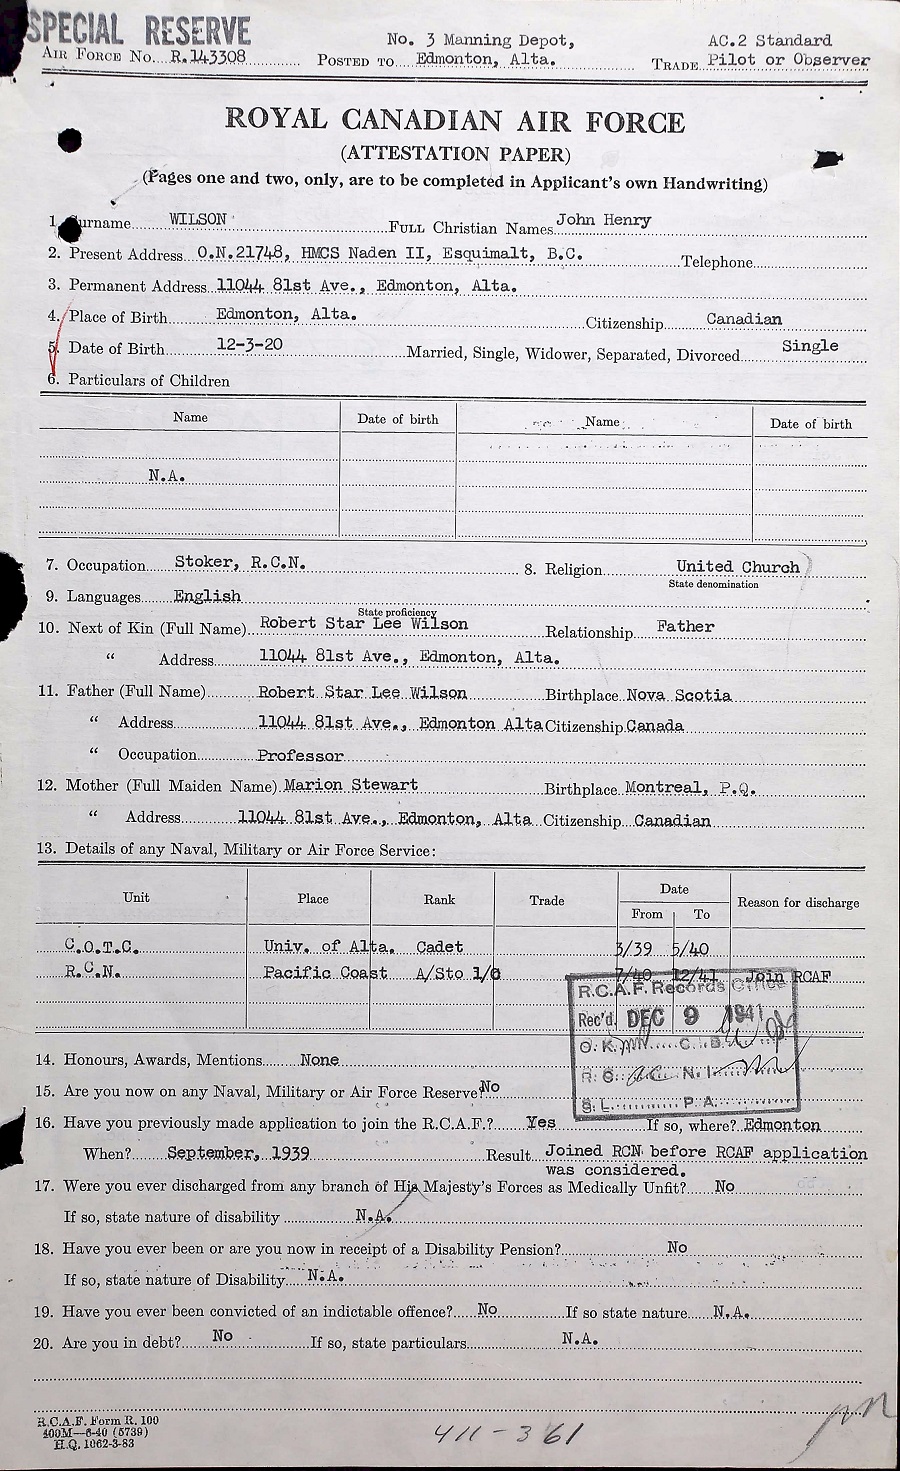 SPECIAL RESERVE
AIR FORCE No. R.143308 POSTED TO No. 3 Manning Depot, Edmonton, Alta. TRADE AC.2 Standard Pilot or Observer
ROYAL CANADIAN AIR FORCE
(ATTESTATION PAPER)
(Pages one and two, only, are to be completed in Applicant's own Handwriting)
1. Surname WILSON FULL Christian Names John Henry
2. Present Address O.N.21748, HMCS Naden II, Esquimalt, B.C. Telephone
3. Permanent Address 11044 81st Ave., Edmonton, Alta.
4. Place of Birth Edmonton, Alta. Citizenship Canadian
5. Date of Birth 12-3-20 Married, Single, Widower, Separated, Divorced Single
6. Particulars of Children
Name Date of birth Name Date of birth
N.A.
7. Occupation Stoker, R.C.N. 8. Religion United Church
State denomination
9. Languages English
State proficiency
10. Next of Kin (Full Name) Robert Star Lee Wilson Relationship Father
" Address 11044 81st Ave., Edmonton, Alta.
11. Father (Full Name) Robert Star Lee Wilson Birthplace Nova Scotia
" Address 11044 81st Ave., Edmonton Alta Citizenship Canada
" Occupation Professor
12. Mother (Full Maiden Name) Marion Stewart Birthplace Montreal, P.Q.
" Address 11044 81st Ave., Edmonton, Alta Citizenship Canadian
13. Details of any Naval, Military or Air Force Service:
Unit Place Rank Trade Date Reason for discharge
From To
C.O.T.C. Univ. of Alta. Cadet 3/39 5/40
R.C.N. Pacific Coast A/Sto 1/C 7/40 12/41 Join RCAF
R.C.A.F. Records Office
Rec'd. DEC 9 1941
O.K. C.B.
R.G. N.I.
S.L. P.A.
14. Honours, Awards, Mentions None
15. Are you now on any Naval, Military or Air Force Reserve? No
16. Have you previously made application to join the R.C.A.F.? Yes If so, where? Edmonton
When? September, 1939 Result Joined RCN before RCAF application
was considered.
17. Were you ever discharged from any branch of His Majesty's Forces as Medically Unfit? No
If so, state nature of disability N.A.
18. Have you ever been or are you now in receipt of a Disability Pension? No
If so, state nature of Disability N.A.
19. Have you ever been convicted of an indictable offence? No If so state nature N.A.
20. Are you in debt? No If so, state particulars N.A.
R.C.A.F. Form R. 100
400M—6-40 (5739)
H.Q. 1062-3-83
411-361